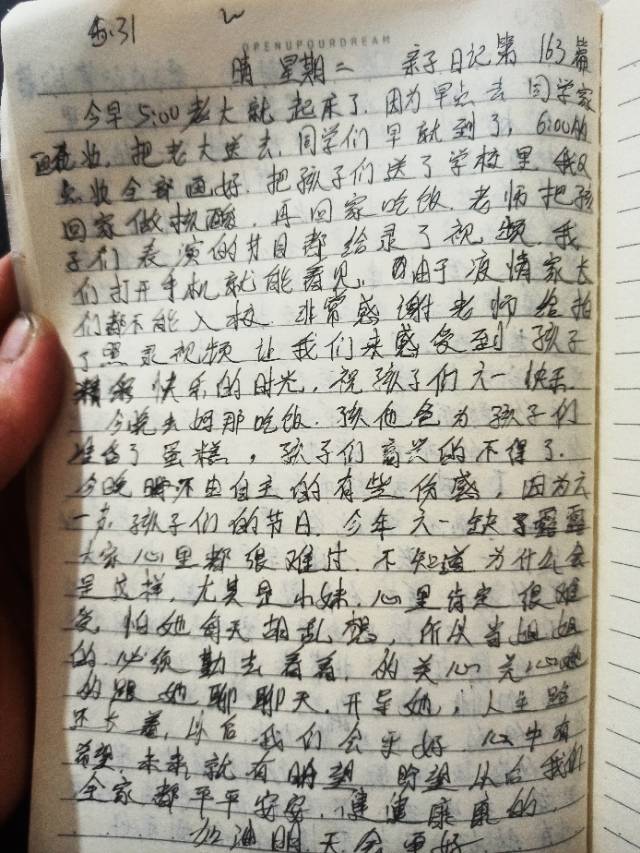 5.31
OPENUPOURDREAM
晴 星期二 亲子日记第163篇
今早5:00老大就起床了,因为早点去同学家
画妆,把老大送去,同学们早就到了,6:00
妆全部画好,把孩子们送了学校里,我又
回家做核酸,再回家吃饭,老师把孩
子们表演的节目都给录了视频,我
们打开手机就能看见,因由于疫情家长
们都不能入校,非常感谢老师给拍
了照录视频让我们来感受到孩子
精彩快乐的时光,祝孩子们六一快乐。
今晚去妈那吃饭,孩他爸为孩子们
准备了蛋糕,孩子们高兴的不得了。
今晚不由自主的有些伤感,因为六
一是孩子们的节日,今年六一缺了
大家心里都很难过,不知道为什么会
是这样,尤其是小妹,心里肯定很难
受,怕她每天胡乱想,所以当姐姐
的必须勤去看看,的关心关心她
的跟她聊聊天,开导她,人生路
不长着,以后我们会更好,心中有
希望,未来就有盼望,盼望以后我们
全家都平平安安,健健康康的。
加油明天会更好